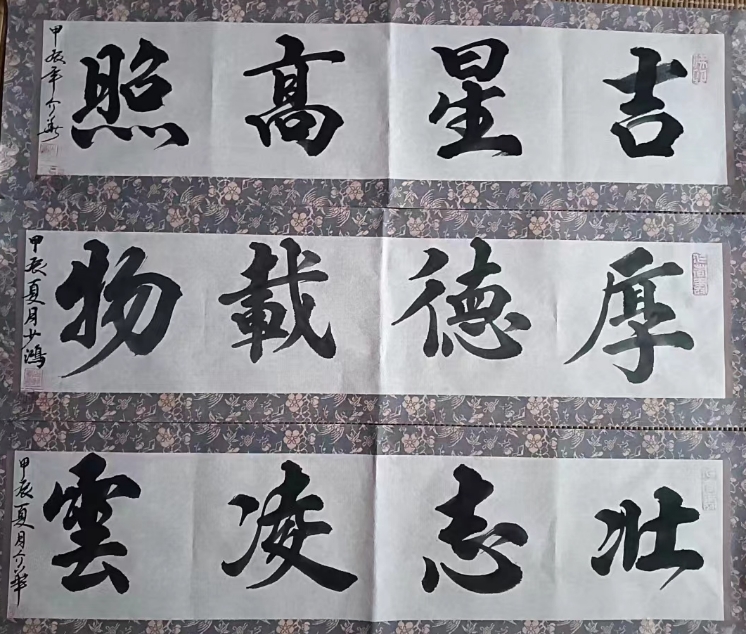 吉星高照
甲辰年介華
厚德載物
甲辰夏月少鴻
壯志凌雲
甲辰夏月介華